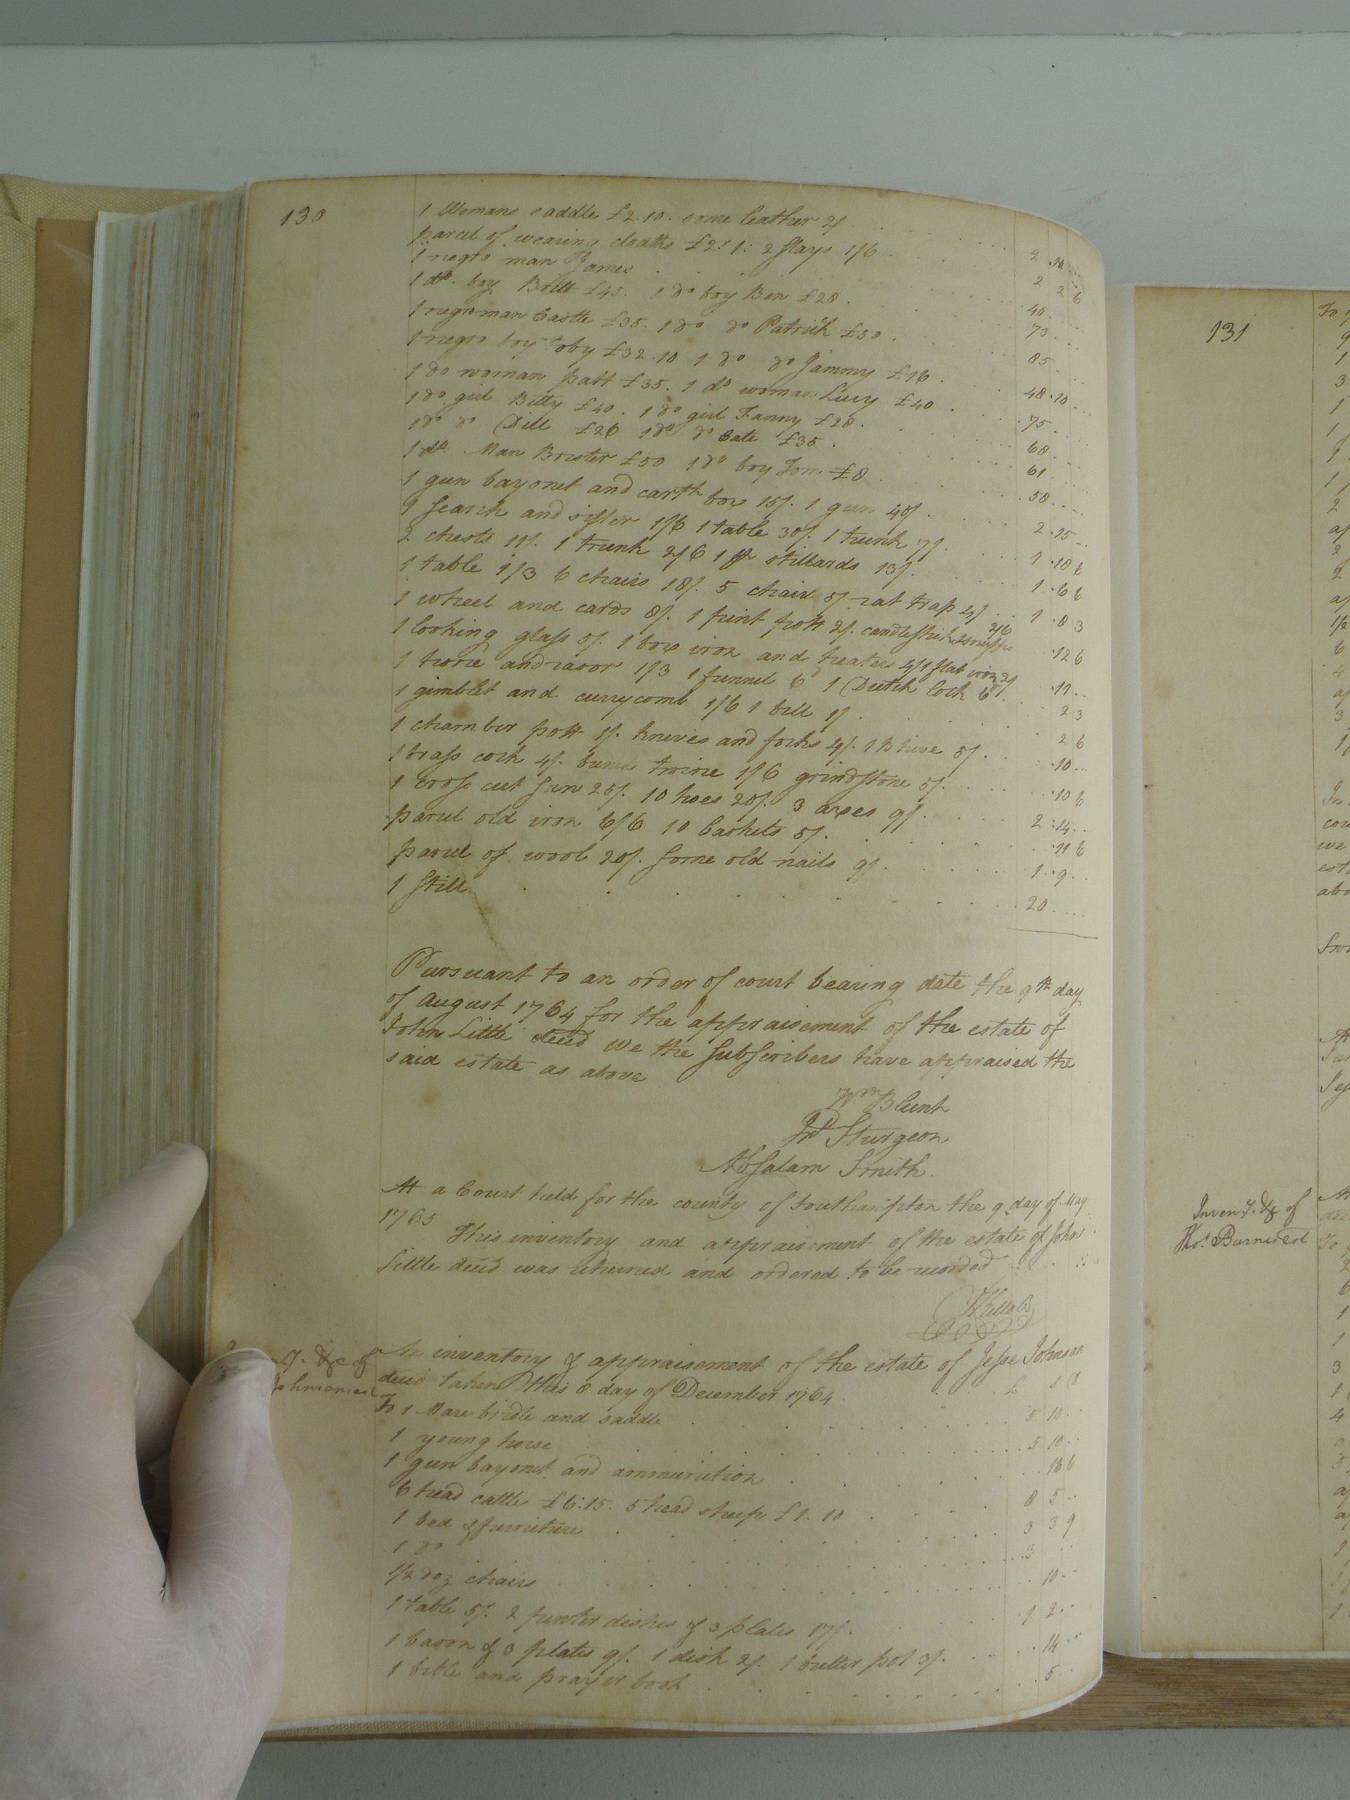 130
1 Womans saddle £2.10. some leather 2/ 2 .12
parcel of wearing cloaths £2:1: 2 slays 1/6 2 2 6
1 negro man James 40
1 do. boy Britt £45. 1 do boy Ben £28 73
1 negroman Castle £35. 1 do do Patrick £50 85
1 negro boy Toby £32.10 1 do do Jammy £16 48.10
1 do woman patt £35. 1 do woman Lucy £40 75
1 do girl Betty £40. 1 do girl Fanny £28 68
1 do do Dill £26 1 do do Cate £35 61
1 do. Man Brister £50 1 do boy Tom £8 58
1 gun bayonet and carth box 15/. 1 gun 40/. 2.15
1 search and sifter 1/6 1 table 30/. 1 trunk 7/. 1.18 6
2 chests 11/. 1 trunk 2/6 1 pr stillards 13/. 1.6 6
1 table 1/3 6 chairs 18/. 5 chairs 5/. rat trap 4/ 1.8 3
1 wheel and cards 8/. 1 pint pott 2/. candlestick & snuffrs 2/6 .12 6
1 looking glass 5/. 1 box iron and heaters 4/1 flat iron 2/ .11
1 hone and razor 1/3 1 funnel 6d 1 Dutch lock 6d/. 2 3
1 gimblet and currycomb 1/6 1 bell 1/. 2 6
1 chamber pott 1/. knives and forks 4/. 1 B hive 5/. .10
1 brass cock 4/. twine 1/6 grindstone 5/. .10 6
1 cross cut saw 25/. 10 hoes 20/. 3 axes 9/. 2.14
parcel old iron 6/6 10 baskets 5/. .11 6
parcel of wool 20/. some old nails 9/. 1.9
1 still 20
Pursuant to an order of court bearing date the 9th day
of August 1764 for the appraisement of the estate of
John Little decd we the subscribers have appraised the
said estate as above
Wm Blunt
Sturgeon
Absalam Smith.
At a Court held for the county of Southampton the 9 day of May
1765 This inventory and appraisement of the estate of John
Little decd was returned and ordered to be recorded
&c of
Johnson
An inventory & appraisement of the estate of Jesse Johnson
decd taken this 8 day of December 1764 £ s d
To 1 Mare bridle and saddle 5 10
1 young horse 5 10
1 gun bayonet and ammunition 16 6
6 head cattle £6:15. 5 head sheep £1.10 8 5
1 bed & furniture 3 3 9
1 do 3
1/2 doz chairs 10
1 table 5/. 2 pewter dishes & 3 plates 17/. 1 2
1 bason & 3 plates 9/. 1 dish 2/. 1 butter pot 3/. 14
1 bible and prayer book 5
131
Inven y. &c of
Thos. Barnes